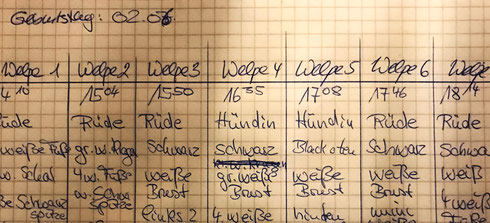 Geburtstag: 02.06
Welpe 1 Welpe 2 Welpe 3 Welpe 4 Welpe 5 Welpe 6 Welpe
4 10 15 04 15 50 16 55 17 08 17 46 18 14
üde Rüde Rüde Hündin Hündin Rüde Rüde
weiße Füße gr. w. Schwarz schwarz Black Schwarz Schwa
w. Schal 4 w. Füße weiße gr. weiße weiße weiße weiß
e Schwanz w. Schw. Brust Brust Brust Brust 4 weiß
spitze spitze links 2 4 weiße hinden mini